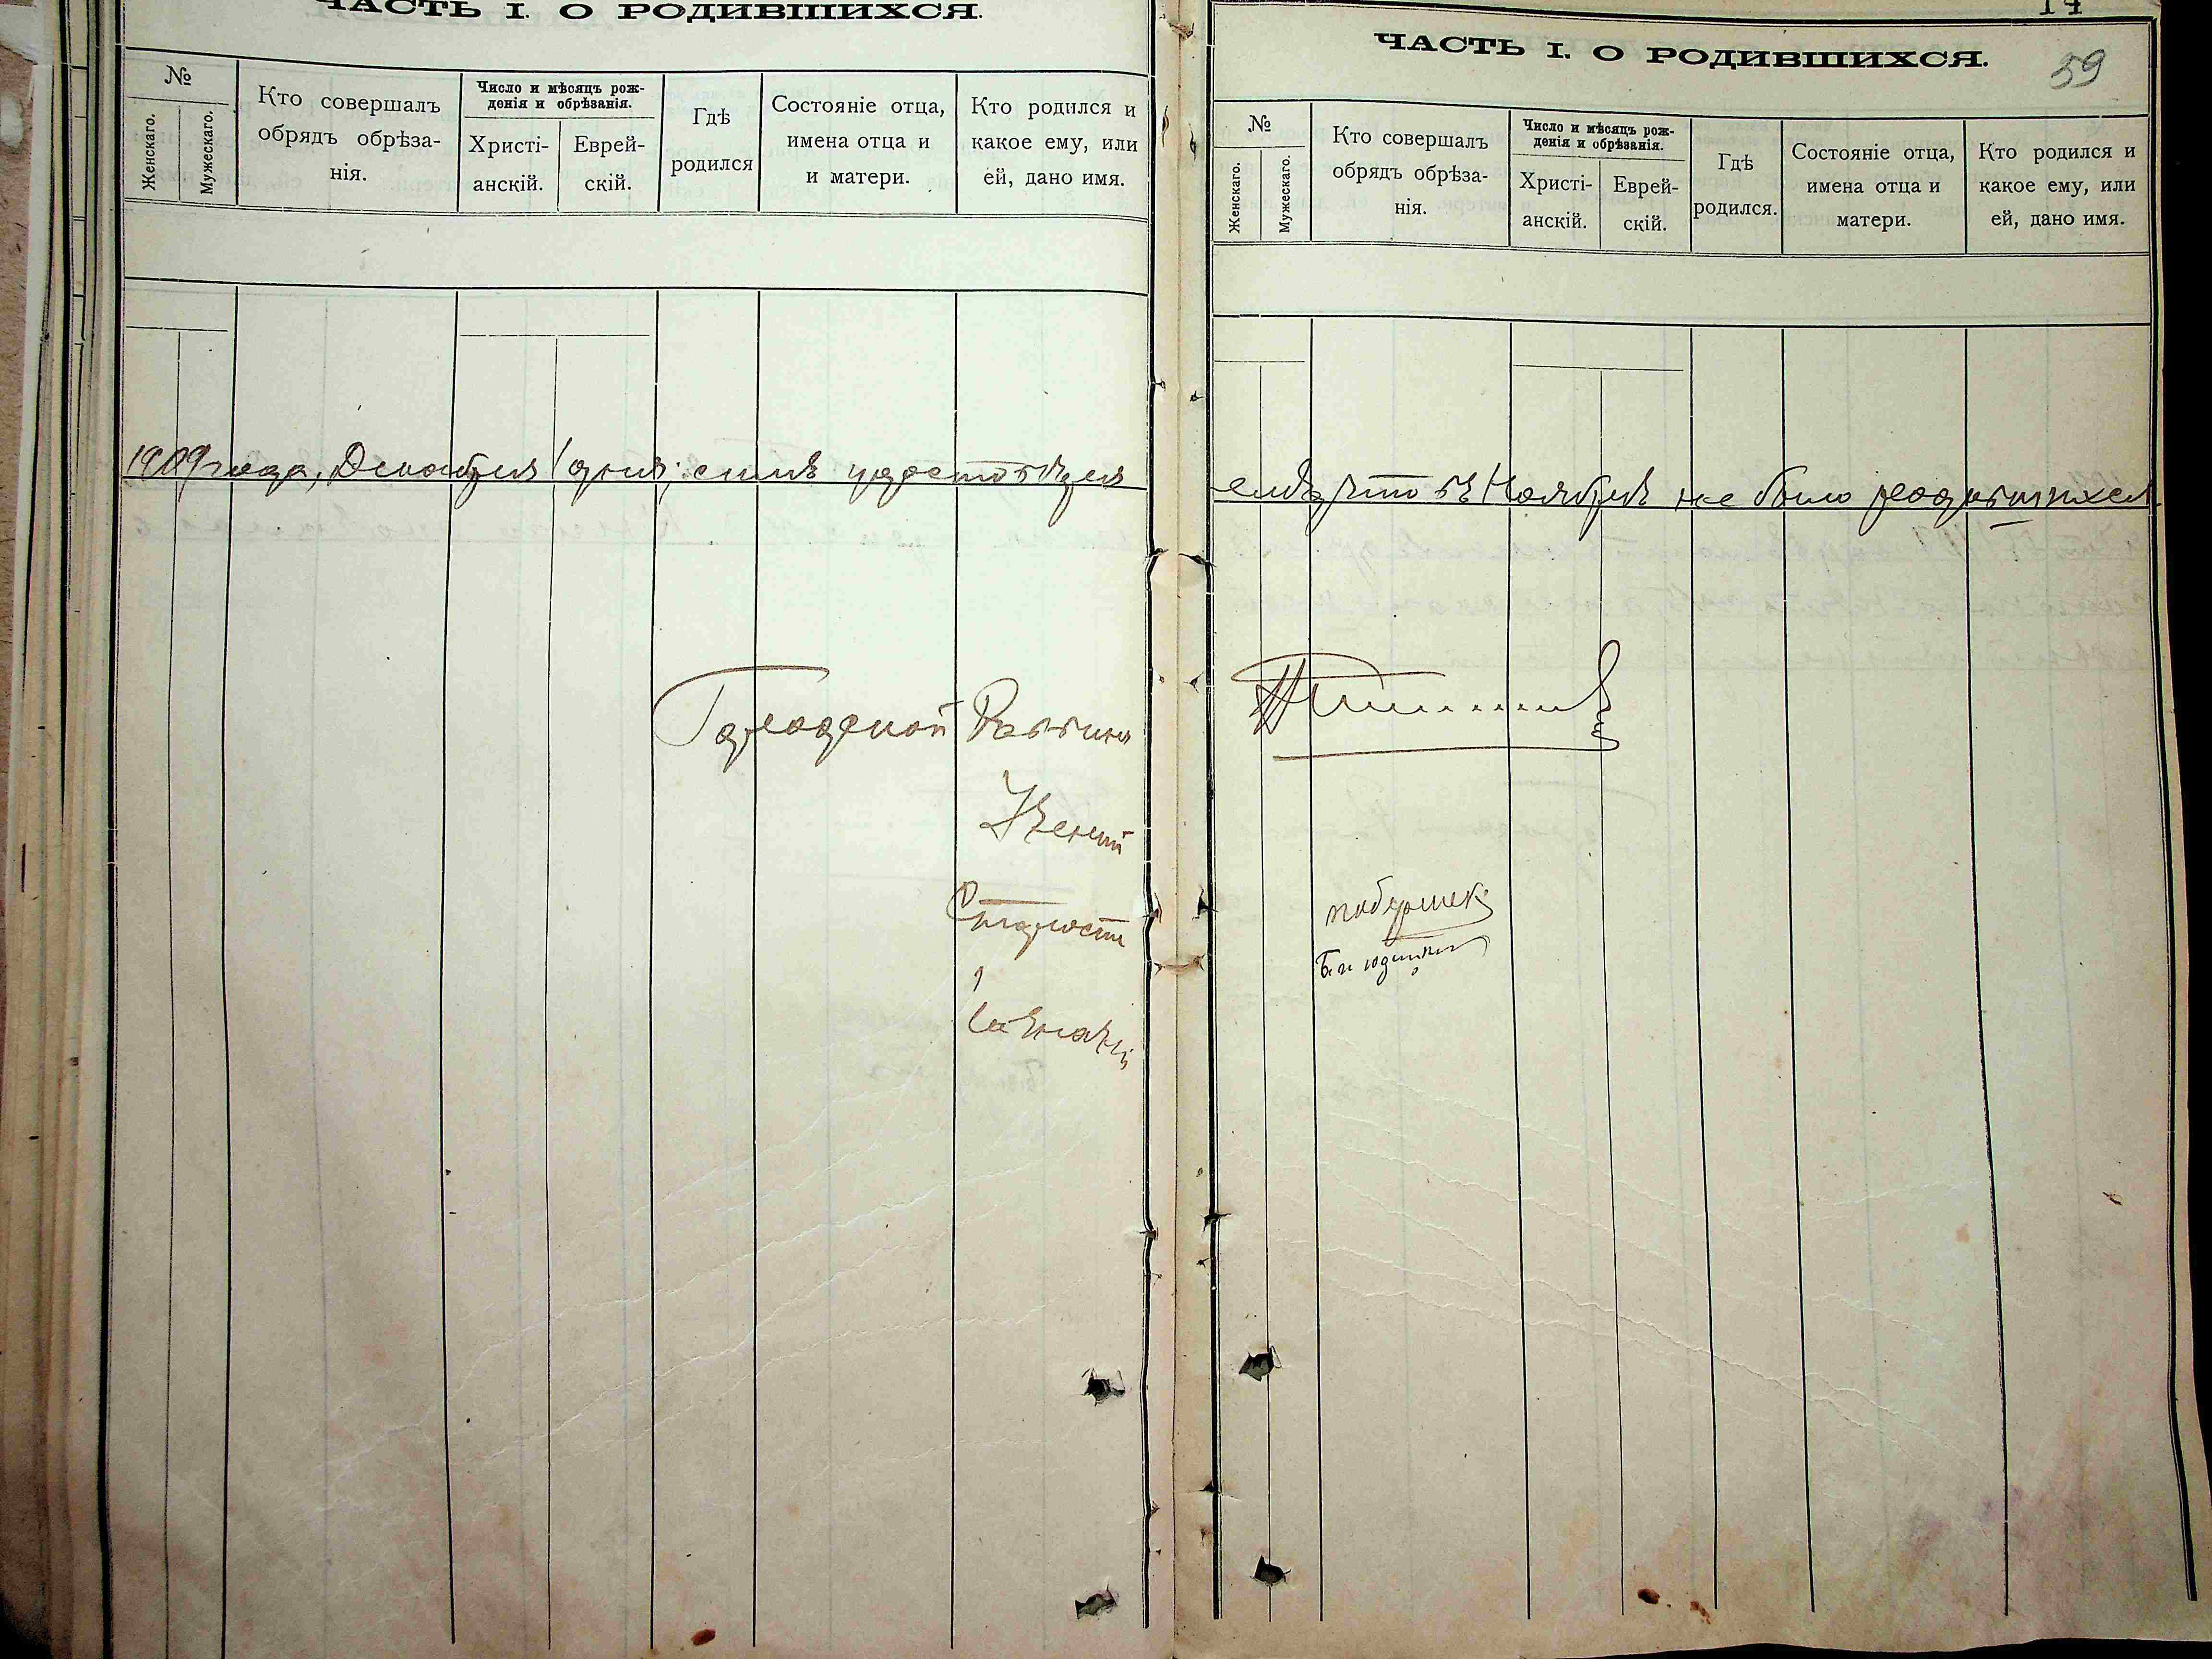 ЧАСТЬ I. О РОДИВШИХСЯ.
№
Женскаго.
Мужескаго.
Кто совершалъ
обрядъ обрѣза-
нія.
Число и мѣсяцъ рож-
денія и обрѣзанія.
Христі-
анскій.
Еврей-
скій.
Гдѣ
родился
Состояніе отца,
имена отца и
и матери.
Кто родился и
какое ему, или
ей, дано имя.
1909 года, Декабря 1 дня; симъ удостовѣря
Городской Раввинъ
Ученый
Староста
Казначей
14
59
ЧАСТЬ I. О РОДИВШИХСЯ.
№
Женскаго.
Мужескаго.
Кто совершалъ
обрядъ обрѣза-
нія.
Число и мѣсяцъ рож-
денія и обрѣзанія.
Христі-
анскій.
Еврей-
скій.
Гдѣ
родился.
Состояніе отца,
имена отца и
матери.
Кто родился и
какое ему, или
ей, дано имя.
емъ, что въ Ноябрѣ не было родившихся